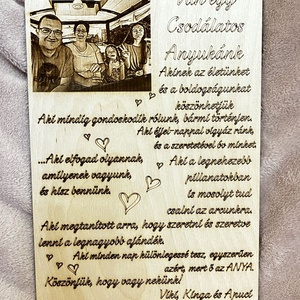 Van egy
Csodálatos
Anyukánk
Akinek az életünket
és a boldogságunkat
köszönhetjük
Aki mindig gondoskodik rólunk, bármi történjen.
Aki éjjel-nappal vigyáz ránk,
és a szeretetével óv minket.
...Aki elfogad olyannak,
amilyenek vagyunk,
és hisz bennünk.
Aki a legnehezebb
pillanatokban
is mosolyt tud
csalni az arcunkra.
Aki megtanított arra, hogy szeretni és szeretve
lenni a legnagyobb ajándék.
Aki minden nap különlegessé tesz, egyszerűen
azért, mert ő az ANYA.
Köszönjük, hogy vagy nekünk!
Viki, Kinga és Apuci